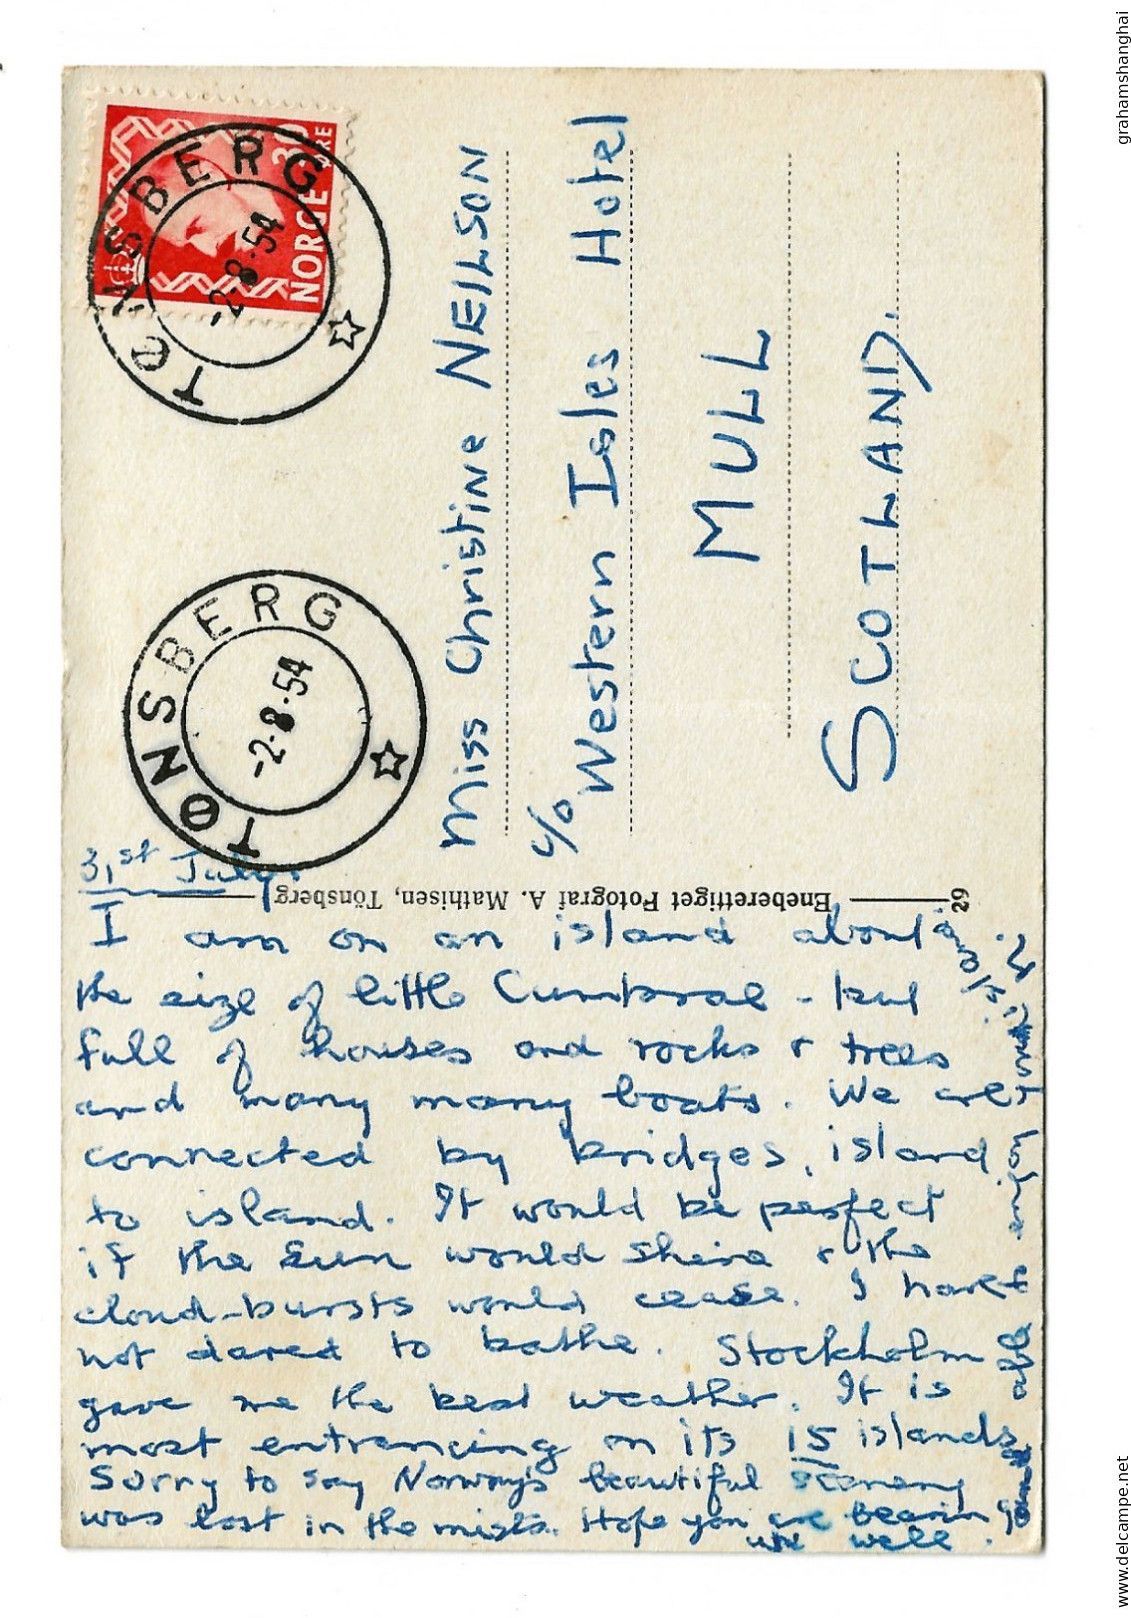 NORGE
30
ØRE
TØNSBERG
-2.8.54
TØNSBERG
-2.8.54
Miss Christine NEILSON
c/o Western Isles Hotel
MULL
SCOTLAND.
Eneberettiget Fotograf A. Mathisen, Tönsberg
29
31st July.
I am on an island about
the size of little Cumbrae - but
full of houses and rocks & trees
and many many boats. We are
connected by bridges, island
to island. It would be perfect
if the sun would shine & the
cloud-bursts would cease. I have
not dared to bathe. Stockholm
gave me the best weather. It is
most entrancing on its 15 islands
Sorry to say Norway's beautiful scenery
was lost in the mists. Hope you are
well.
are enjoying
grahamshanghai
www.delcampe.net